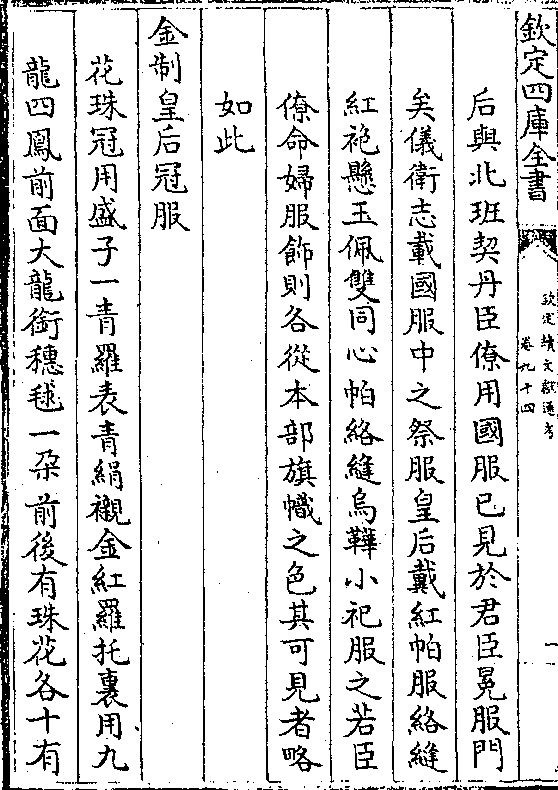 欽定四庫全書
欽定續文獻通考
卷九十四
一
后與北班契丹臣僚用國服已見於君臣冕服門
矣儀衛志載國服中之祭服皇后戴紅帕服絡縫
紅袍懸玉佩雙同心帕絡縫烏鞾小祀服之若臣
僚命婦服飾則各從本部旗幟之色其可見者略
如此
金制皇后冠服
花珠冠用盛子一青羅表青絹襯金紅羅托裏用九
龍四鳳前面大龍銜穗毬一朶前後有珠花各十有